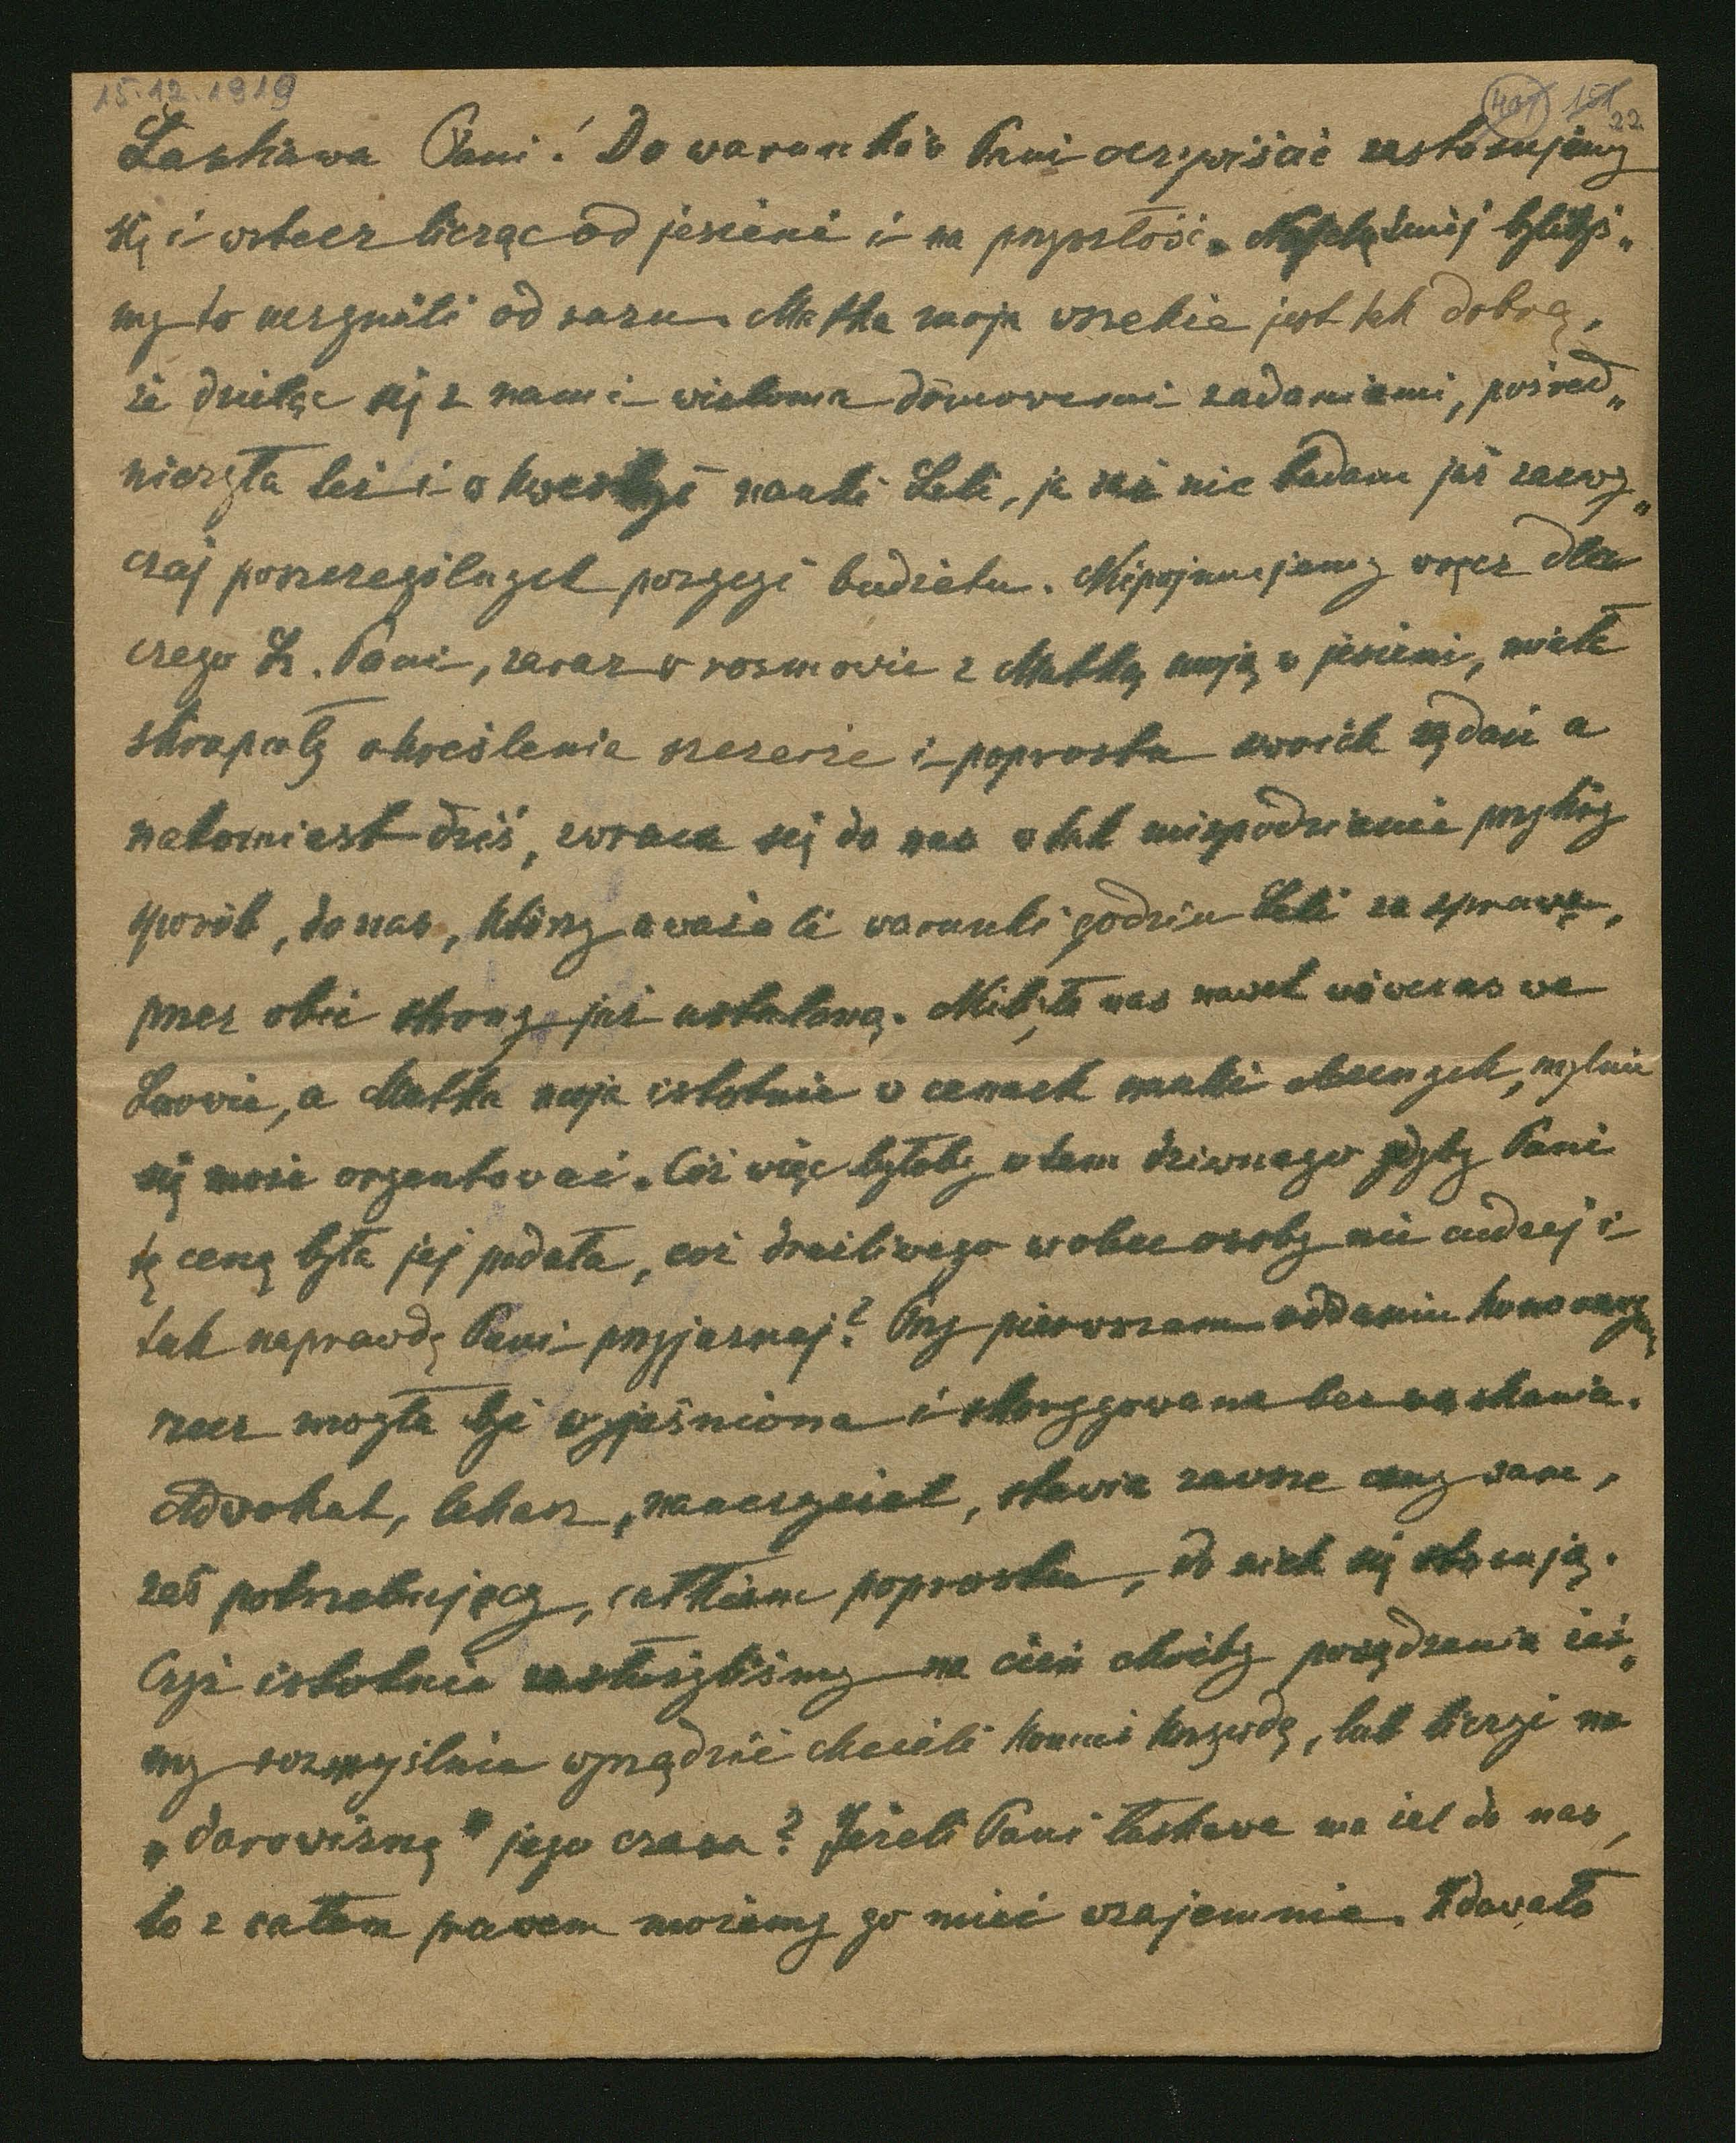 15.12.1919
22
Łaskawa Pani! Do warunków Pani oczywiście zastosujemy
się i wstecz licząc od jesieni i na przyszłość. Najchętniej bylibyś„
my to uczynili od razu. Matka moja wszelkie jest tak dobrą,
że dzieląc się z nami wieloma domowemi zadaniami, pośred„
niczyła też i w kwestyi nauki Leli, ja zaś nie badam już zazwy„
czaj poszczególnych pozycyi budżetu. Niepojmujemy wręcz dla
czego Ł. Pani, zaraz w rozmowie z Matką moją w jesieni, miała
skrupuły określenia szczerze i poprostu swoich żądań a
natomiast dziś, zwraca się do nas w tak niespodzianie przykry
sposób, do nas, którzy uważali warunki godzin Leli za sprawę,
przez obie strony już ustaloną. Nie było nas nawet wówczas we
Lwowie, a Matka moja istotnie w cenach nauki obecnych, mylnie
się może oryentować. Cóż więc byłoby w tem dziwnego gdyby Pani
tę cenę była jej podała, cóż drażliwego wobec osoby nie cudzej i
tak naprawdę Pani przyjaznej? Przy pierwszem oddaniu honoraryum
rzecz mogła być wyjaśniona i skorygowana bez wahania.
Adwokat, lekarz, nauczyciel, stawia zawsze ceny sam,
zaś potrzebujący, całkiem poprostu, do nich się stosują.
Czyż istotnie zasłużyliśmy na cień choćby posądzenia żeś„
my rozmyślnie wyrządzić chcieli komuś krzywdę, lub liczyć na
„darowiznę" jego czasu? Jeżeli Pani łaskawa ma żal do nas,
to z całem prawem możemy go mieć wzajemnie. Zdawało